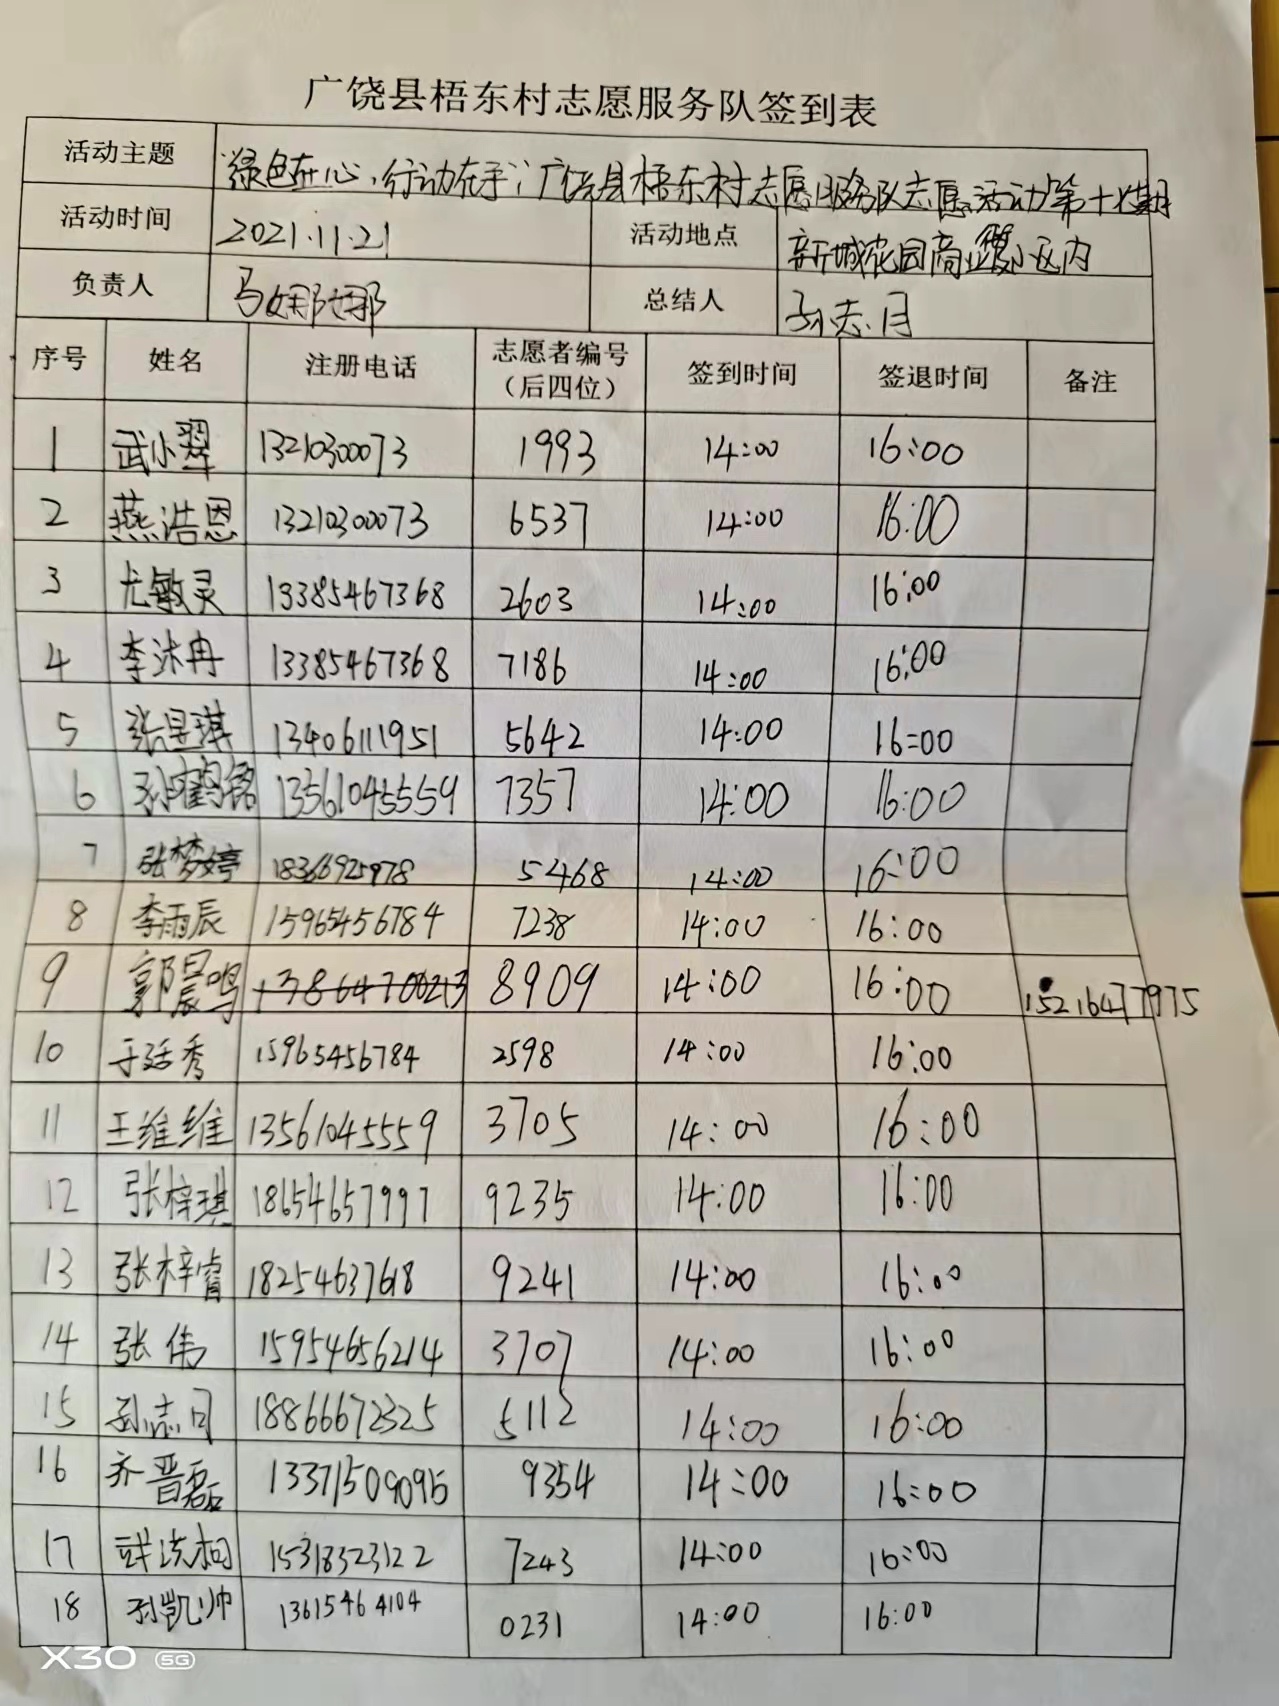 广饶县梧东村志愿服务队签到表
活动主题 “绿色在心,行动在手”广饶县梧东村志愿服务队志愿活动第十七期
活动时间 2021.11.21 活动地点 新城花园商业街小区内
负责人 马娜娜 总结人 孙志月
序号 姓名 注册电话 志愿者编号(后四位) 签到时间 签退时间 备注
1 武小翠 13210300073 1993 14:00 16:00
2 燕浩恩 13210300073 6537 14:00 16:00
3 尤敏灵 13385467368 2603 14:00 16:00
4 李沐冉 13385467368 7186 14:00 16:00
5 张昱琪 13406111951 5642 14:00 16:00
6 13561045559 7357 14:00 16:00
7 张梦婷 18366925978 5468 14:00 16:00
8 李雨辰 15965456784 7238 14:00 16:00
9 郭晨鸣 13864700213 8909 14:00 16:00 15216477975
10 于廷秀 15965456784 2598 14:00 16:00
11 王维维 13561045559 3705 14:00 16:00
12 张梓琪 18654657997 9235 14:00 16:00
13 张梓睿 18254637618 9241 14:00 16:00
14 张伟 15954656214 3707 14:00 16:00
15 孙志月 18866672325 5112 14:00 16:00
16 齐晋磊 13371509095 9354 14:00 16:00
17 15318323122 7243 14:00 16:00
18 孙凯帅 13615464104 0231 14:00 16:00
X30 5G